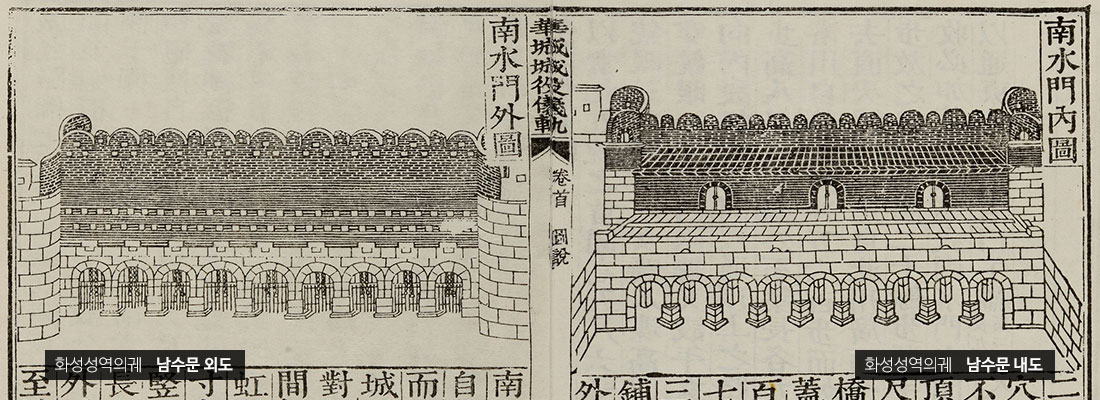 南水門內圖
華城城役儀軌
卷首
圖說
南水門外圖
二穴不頂尺橋蓋百七三鋪外
南自而城對間虹寸竪長外至
화성성역의궤 남수문 외도
화성성역의궤 남수문 내도